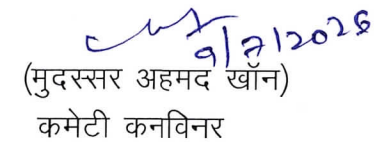 9/7/2026
(मुदस्सर अहमद खॉन)
कमेटी कनविनर